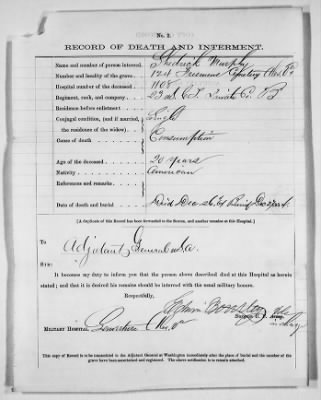 No. 2.
RECORD OF DEATH AND INTERMENT.
Name and number of person interred, Frederick Murphy
Number and locality of the grave, 124 Freemens Cemetery
Hospital number of the deceased, 1108
Regiment, rank, and company, 23 U.S.C.T. Private Co. B
Residence before enlistment
Conjugal condition, (and if married, Single
the residence of the widow)
Cause of death Consumption
Age of the deceased 20 years
Nativity, American
References and remarks,
Date of death and burial, Died Dec
[A duplicate of this Record has been forwarded to the Sexton, and another remains at this Hospital.]
To
Adjutant General U.S.A.
SIR:
It becomes my duty to inform you that the person above described died at this Hospital as herein
stated; and that it is desired his remains should be interred with the usual military honors.
Respectfully,
Edwin Bentley
Surgeon, U. S. Army,
in charge
MILITARY HOSPITAL,
This copy of Record is to be transmitted to the Adjutant General at Washington immediately after the place of burial and the number of the
grave have been ascertained and registered. The above notification is to remain attached.